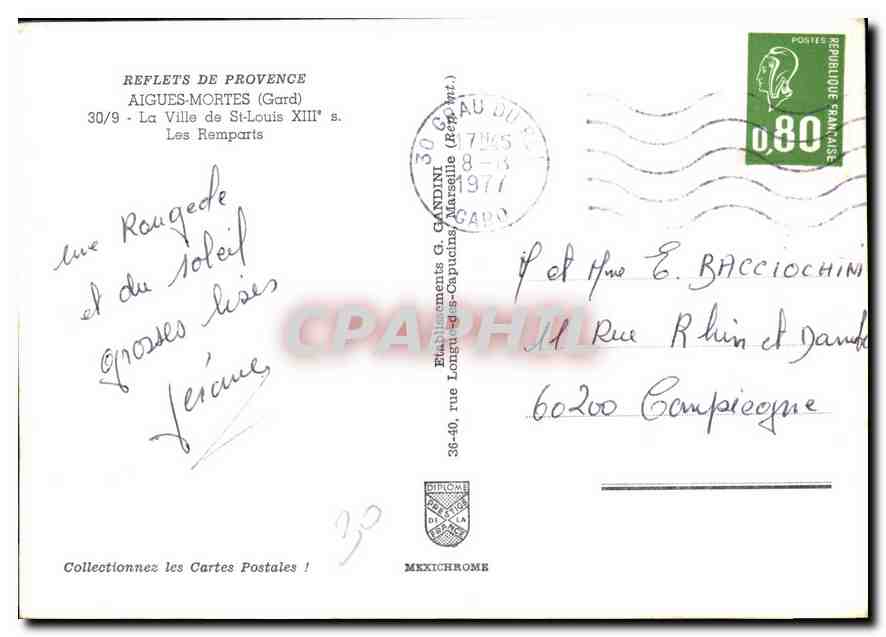 REFLETS DE PROVENCE
AIGUES-MORTES (Gard)
30/9 - La Ville de St-Louis XIIIe s.
Les Remparts
une Rougede
et du soleil
grosses bises
Jérôme
30
Collectionnez les Cartes Postales !
Etablissements G. GANDINI
36-40, rue Longue-des-Capucins, Marseille (Rep. int.)
DIPLOME
PRESTIGE
DE LA
FRANCE
MEXICHROME
30 GRAU DU ROI
17H45
8-8
1977
GARD
POSTES
REPUBLIQUE FRANÇAISE
0,80
M et Mme E. BACCIOCHINI
11 Rue Rhin et Danube
60200 Compiegne
CPAPHIL